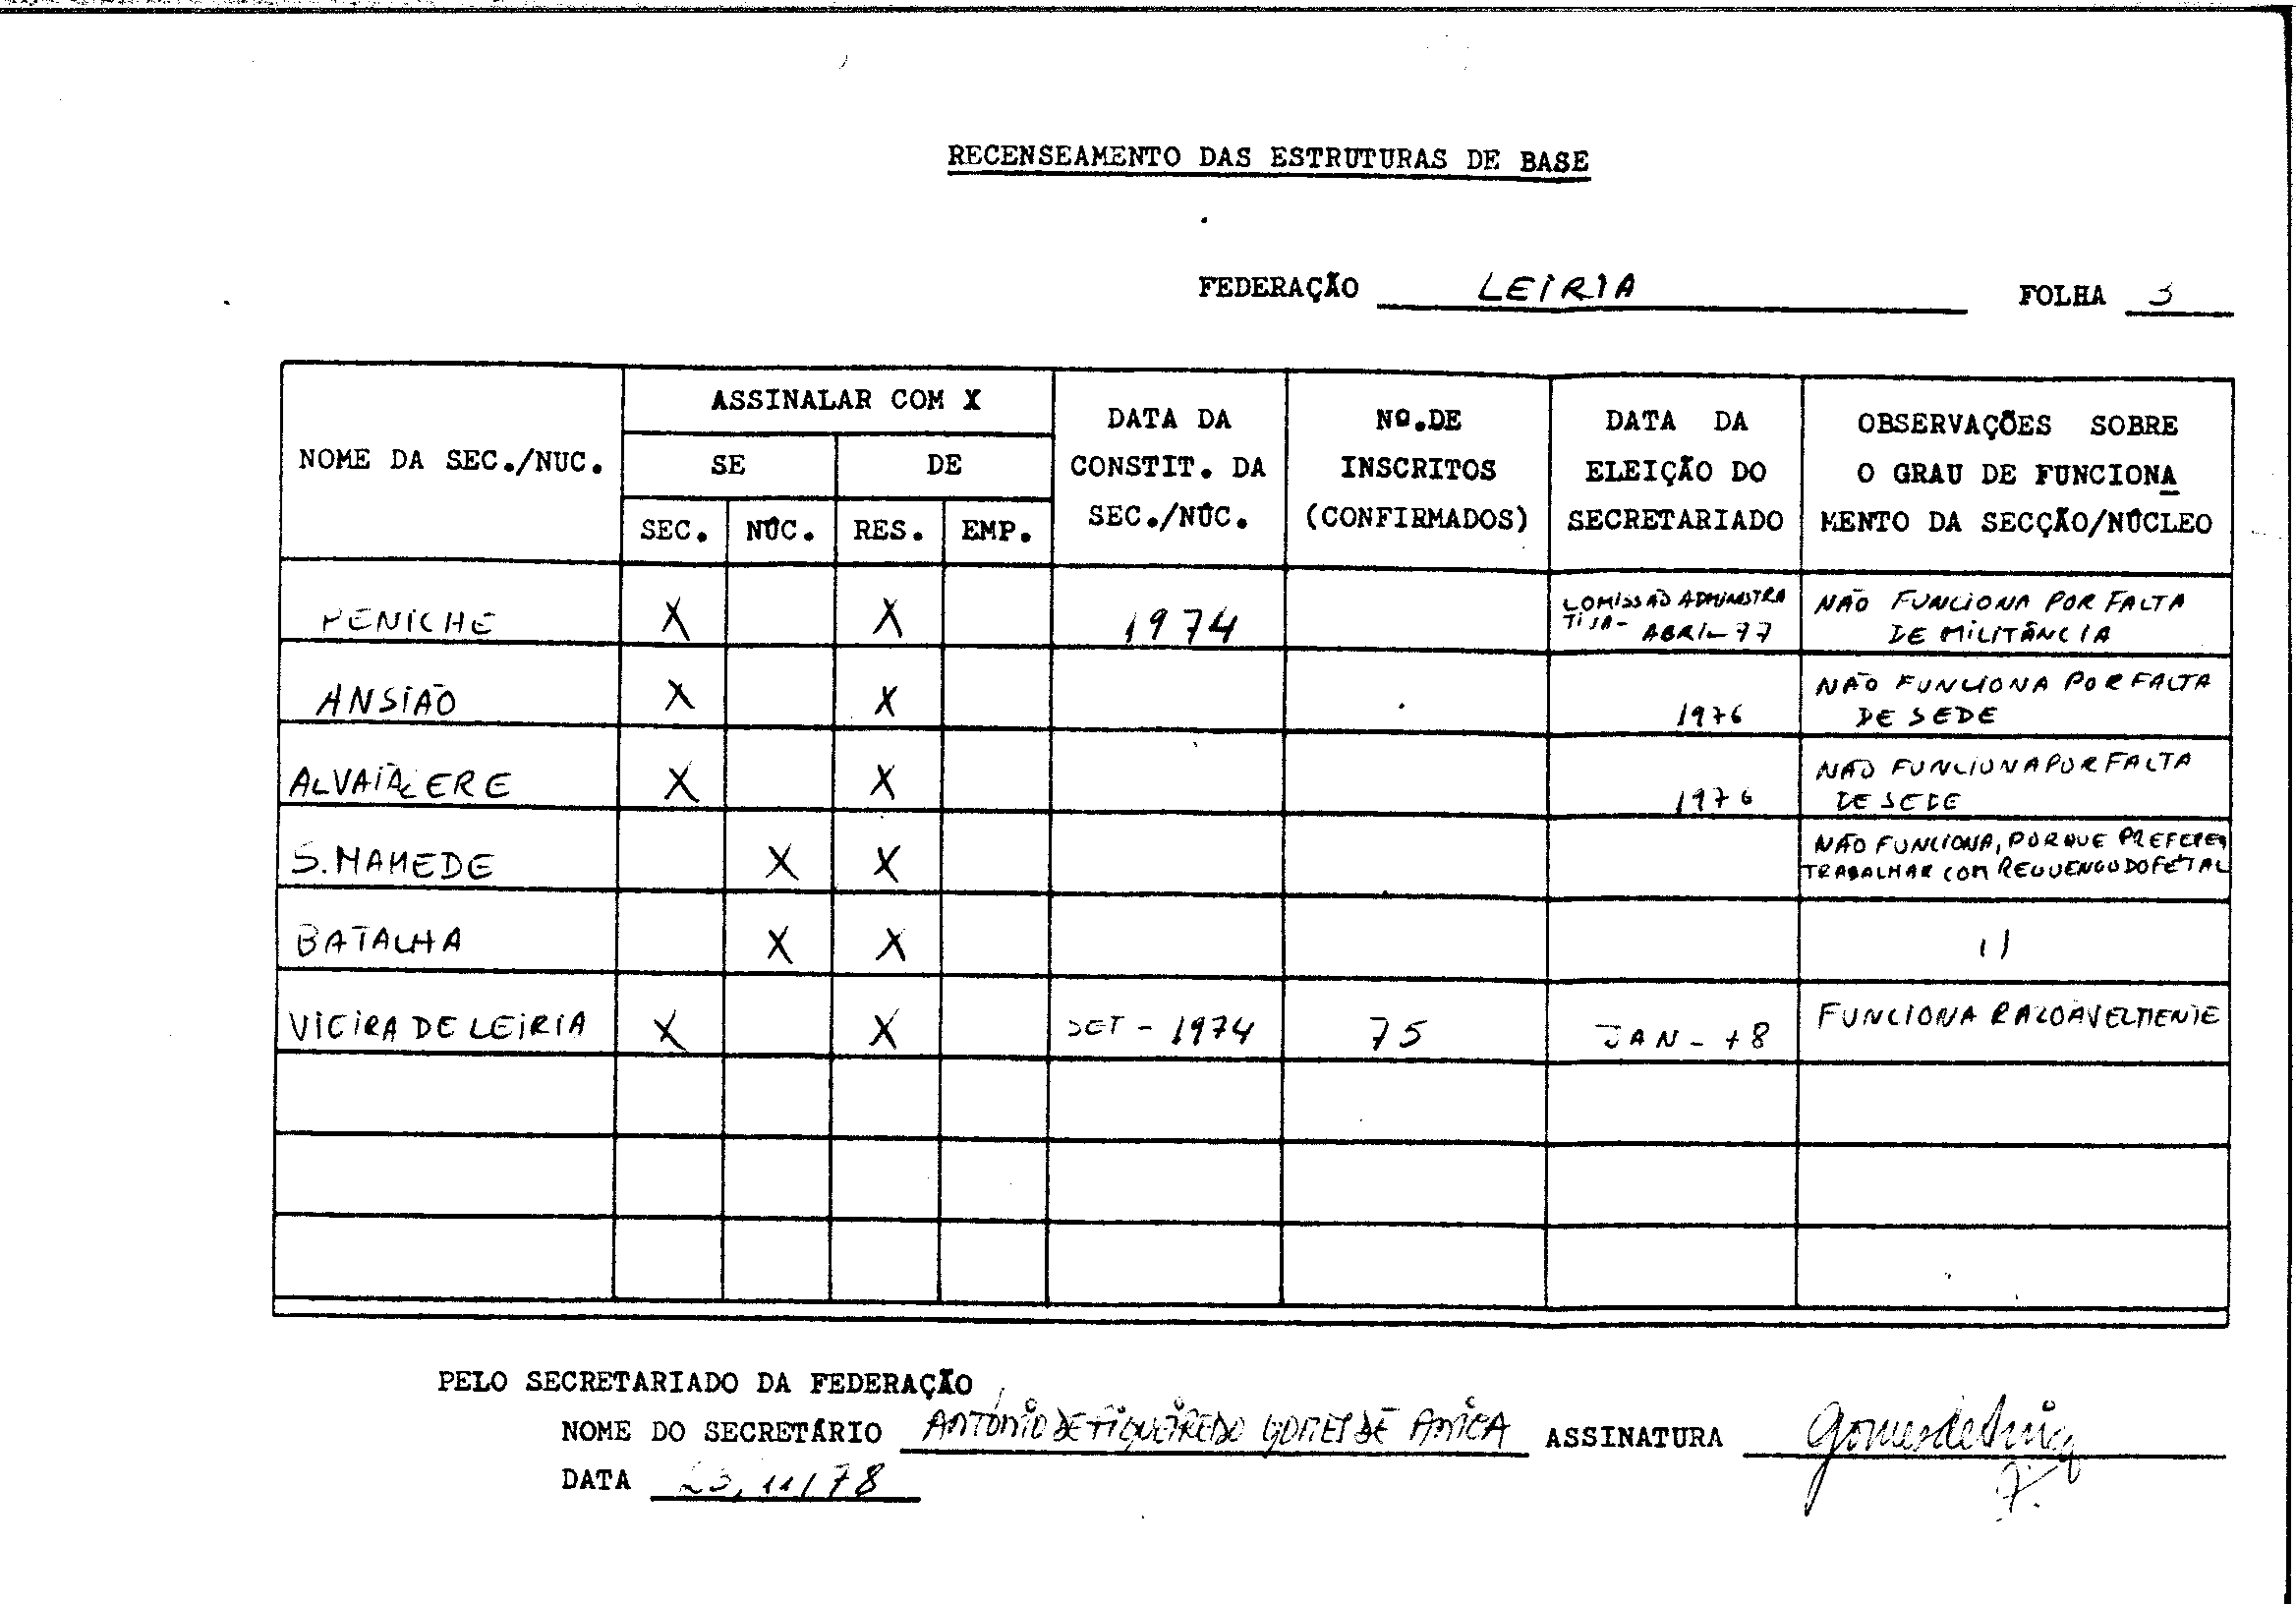 RECENSEAMENTO DAS ESTRUTURAS DE BASE
FEDERAÇÃO LEIRIA FOLHA 3
NOME DA SEC./NUC.
ASSINALAR COM X
SE DE
SEC. NÚC. RES. EMP.
DATA DA
CONSTIT. DA
SEC./NÚC.
Nº.DE
INSCRITOS
(CONFIRMADOS)
DATA DA
ELEIÇÃO DO
SECRETARIADO
OBSERVAÇÕES SOBRE
O GRAU DE FUNCIONA
MENTO DA SECÇÃO/NÚCLEO
PENICHE X X 1974
COMISSÃO ADMINISTRA
TIVA- ABRIL-77
NÃO FUNCIONA POR FALTA
DE MILITÂNCIA
ANSIÃO X X 1976
NÃO FUNCIONA POR FALTA
DE SEDE
ALVAIÁZERE X X 1976
NÃO FUNCIONA POR FALTA
DE SEDE
S. MAMEDE X X
NÃO FUNCIONA, PORQUE PREFEREM
TRABALHAR COM REGUENGO DO FETAL
BATALHA X X 11
VIEIRA DE LEIRIA X X SET - 1974 75 JAN - 78 FUNCIONA RAZOAVELMENTE
PELO SECRETARIADO DA FEDERAÇÃO
NOME DO SECRETÁRIO ANTÓNIO DE FIGUEIREDO GOMES DE ASSINATURA
DATA 23/11/78